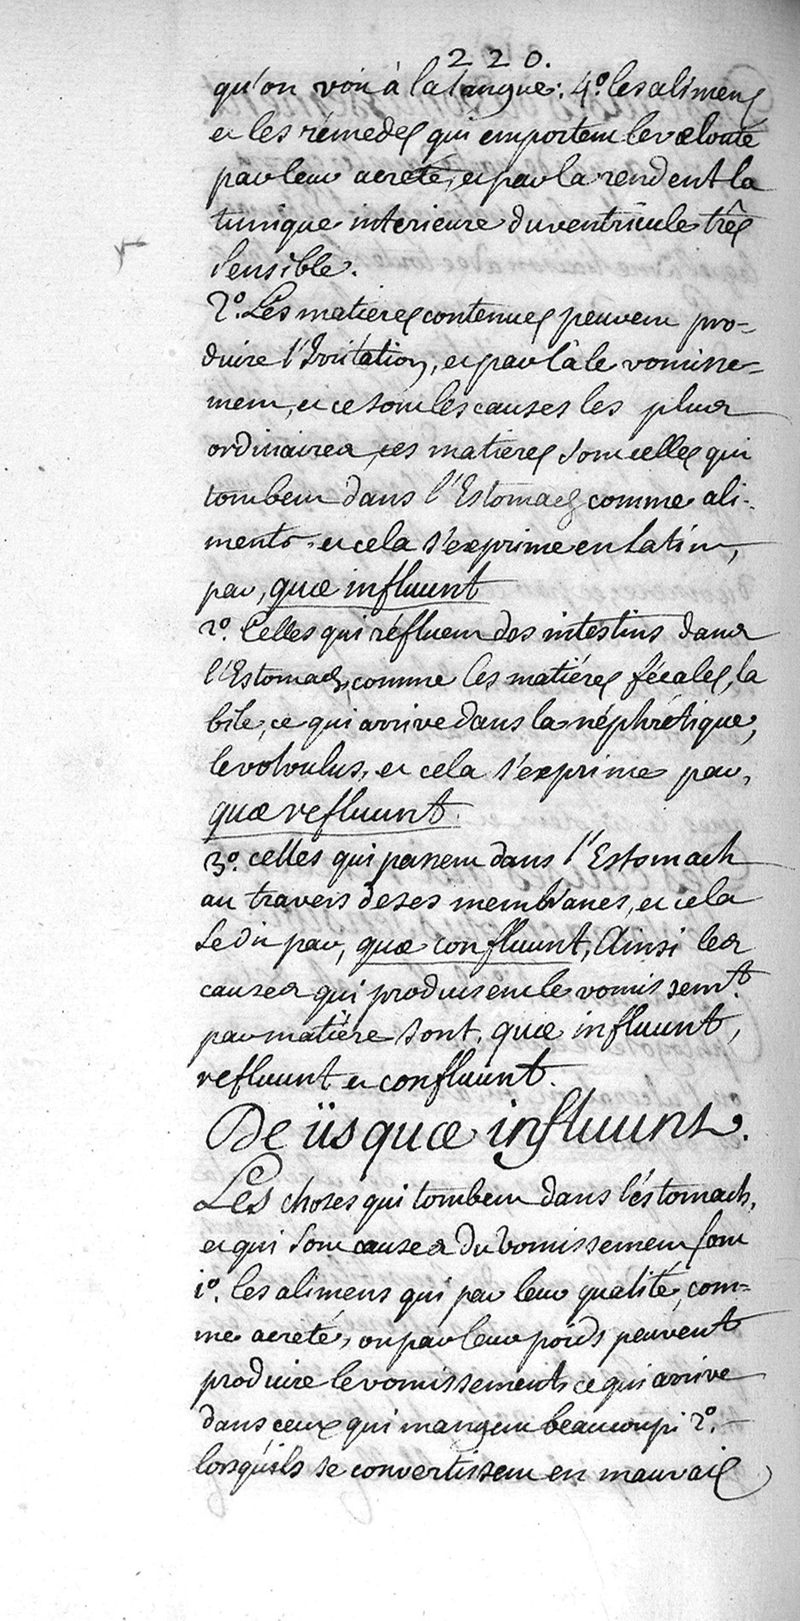 220.
qu'on voit à la langue: 4º. les alimens
et les rémedes qui emportent le velouté
par leur acreté, et par la rendent la
tunique interieure du ventricule três
sensible.
2º. Les matieres contenues peuvent pro-
duire l'Irritation, et par là le vomisse-
ment, et ce sont les causes les plus
ordinaires, ces matieres sont celles qui
tombent dans l'Estomach comme ali-
ments, et cela s'exprime en Latin,
par, quæ influunt
2º. Celles qui réfluent des intestins dans
l'Estomach, comme les matiéres fécales, la
bile, ce qui arrive dans la néphrétique,
le volvulus, et cela s'exprime par,
quæ refluunt.
3º. celles qui passent dans l'Estomach
au travers de ses membranes, et cela
se dit par, quæ confluunt, Ainsi les
causes qui produisent le vomissemt.
par matière sont, quæ influunt,
refluunt et confluunt.
De iis quæ influunt.
Les choses qui tombent dans l'éstomach,
et qui sont causes du Vomissement sont
1º. les alimens qui par leur qualité, com-
me acreté, ou par leur poids peuvent
produire le vomissement, ce qui arrive
dans ceux qui mangent beaucoup; 2º.
lorsqu'ils se convertissent en mauvais